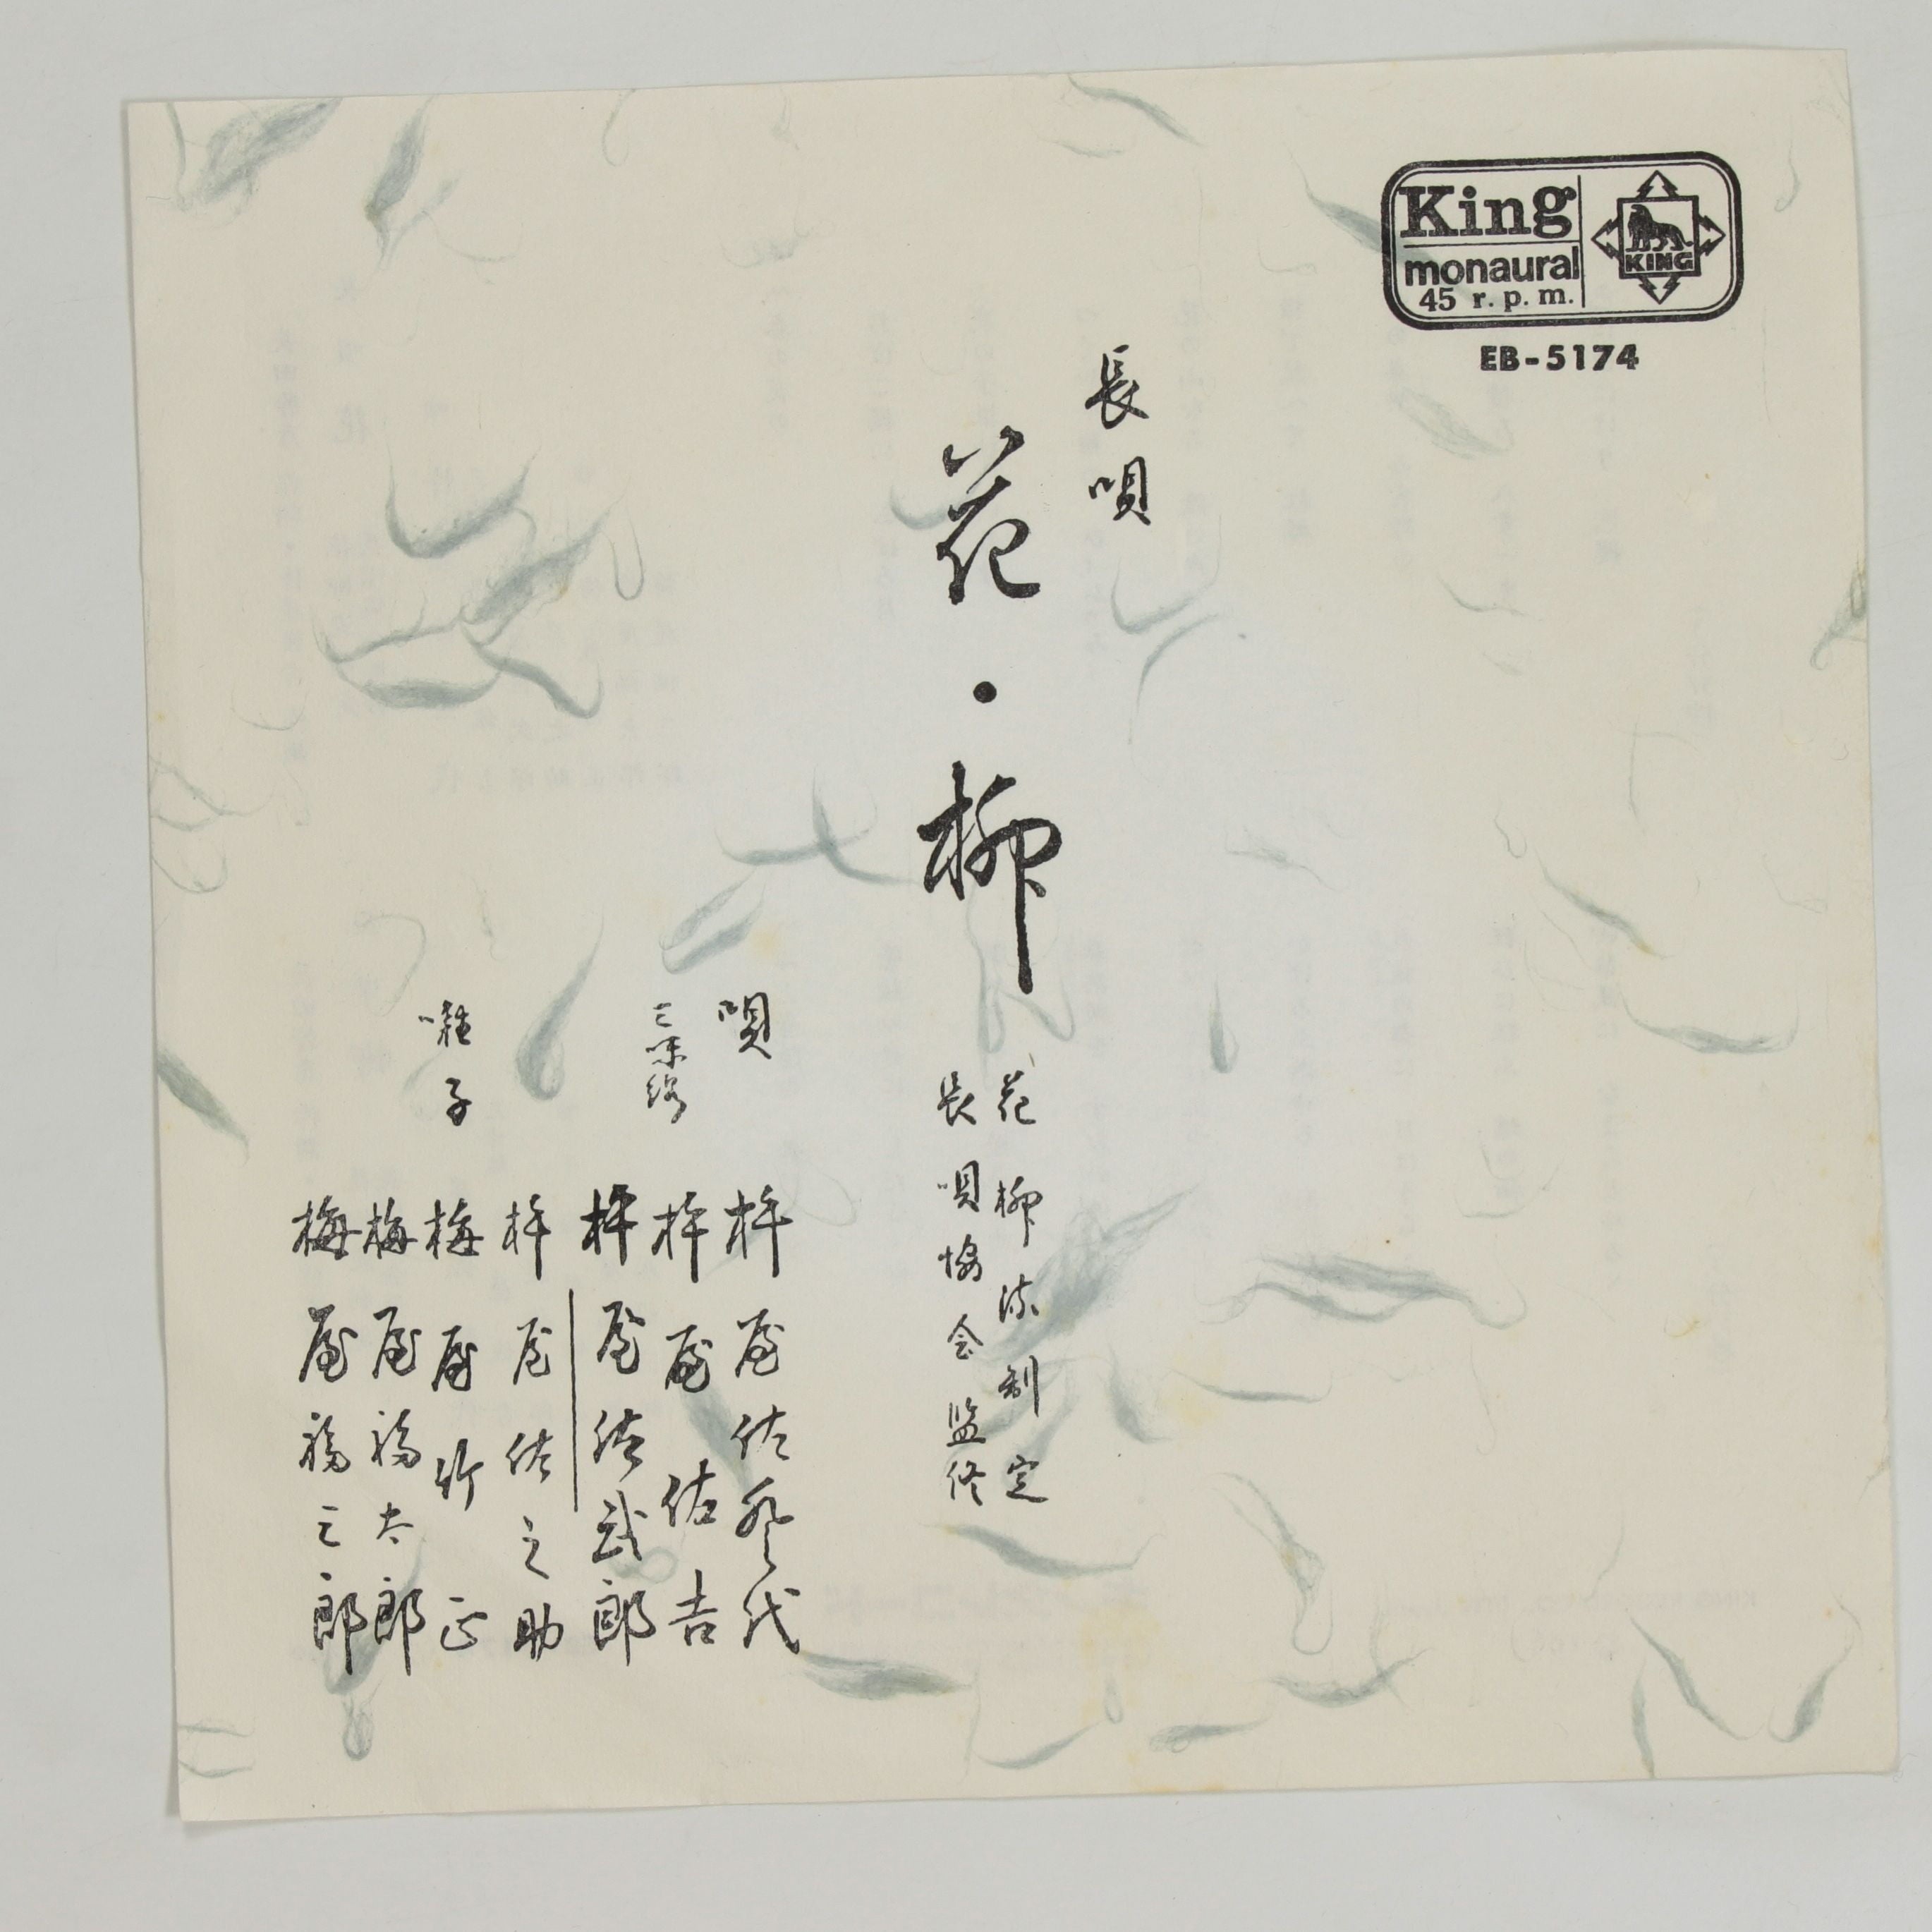 King
monaural
45 r.p.m.
KING
EB-5174
長唄
花・柳
花柳流制定
長唄協会監修
唄
杵屋佐登代
三味線
杵屋佐吉
杵屋佐武郎
杵屋佐之助
囃子
梅屋竹正
梅屋福太郎
梅屋福三郎